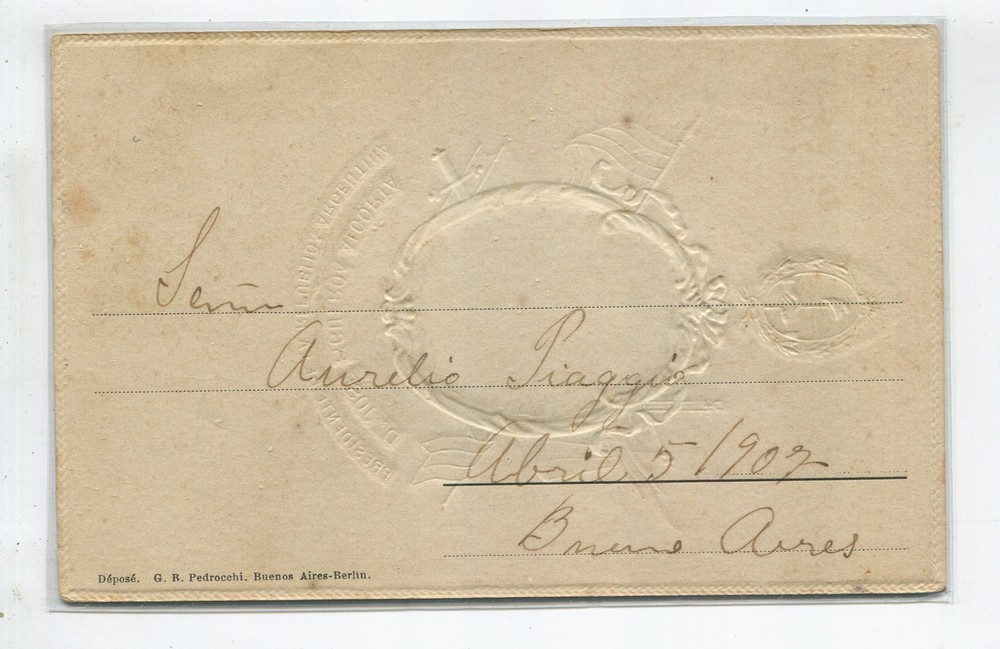 Señor
Aurelio Piaggio
Abril 5/1907
Bueno Aires
Déposé. G. R. Pedrocchi. Buenos Aires-Berlin.
PRESIDENTE REPUBLICA ARGENTINA
Dr. JOSÉ FIGUEROA ALCORTA